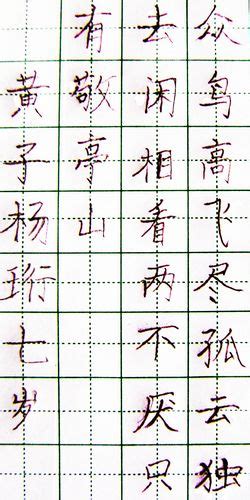 众鸟高飞尽孤云独
去闲相看两不厌只
有敬亭山
黄子杨珩七岁